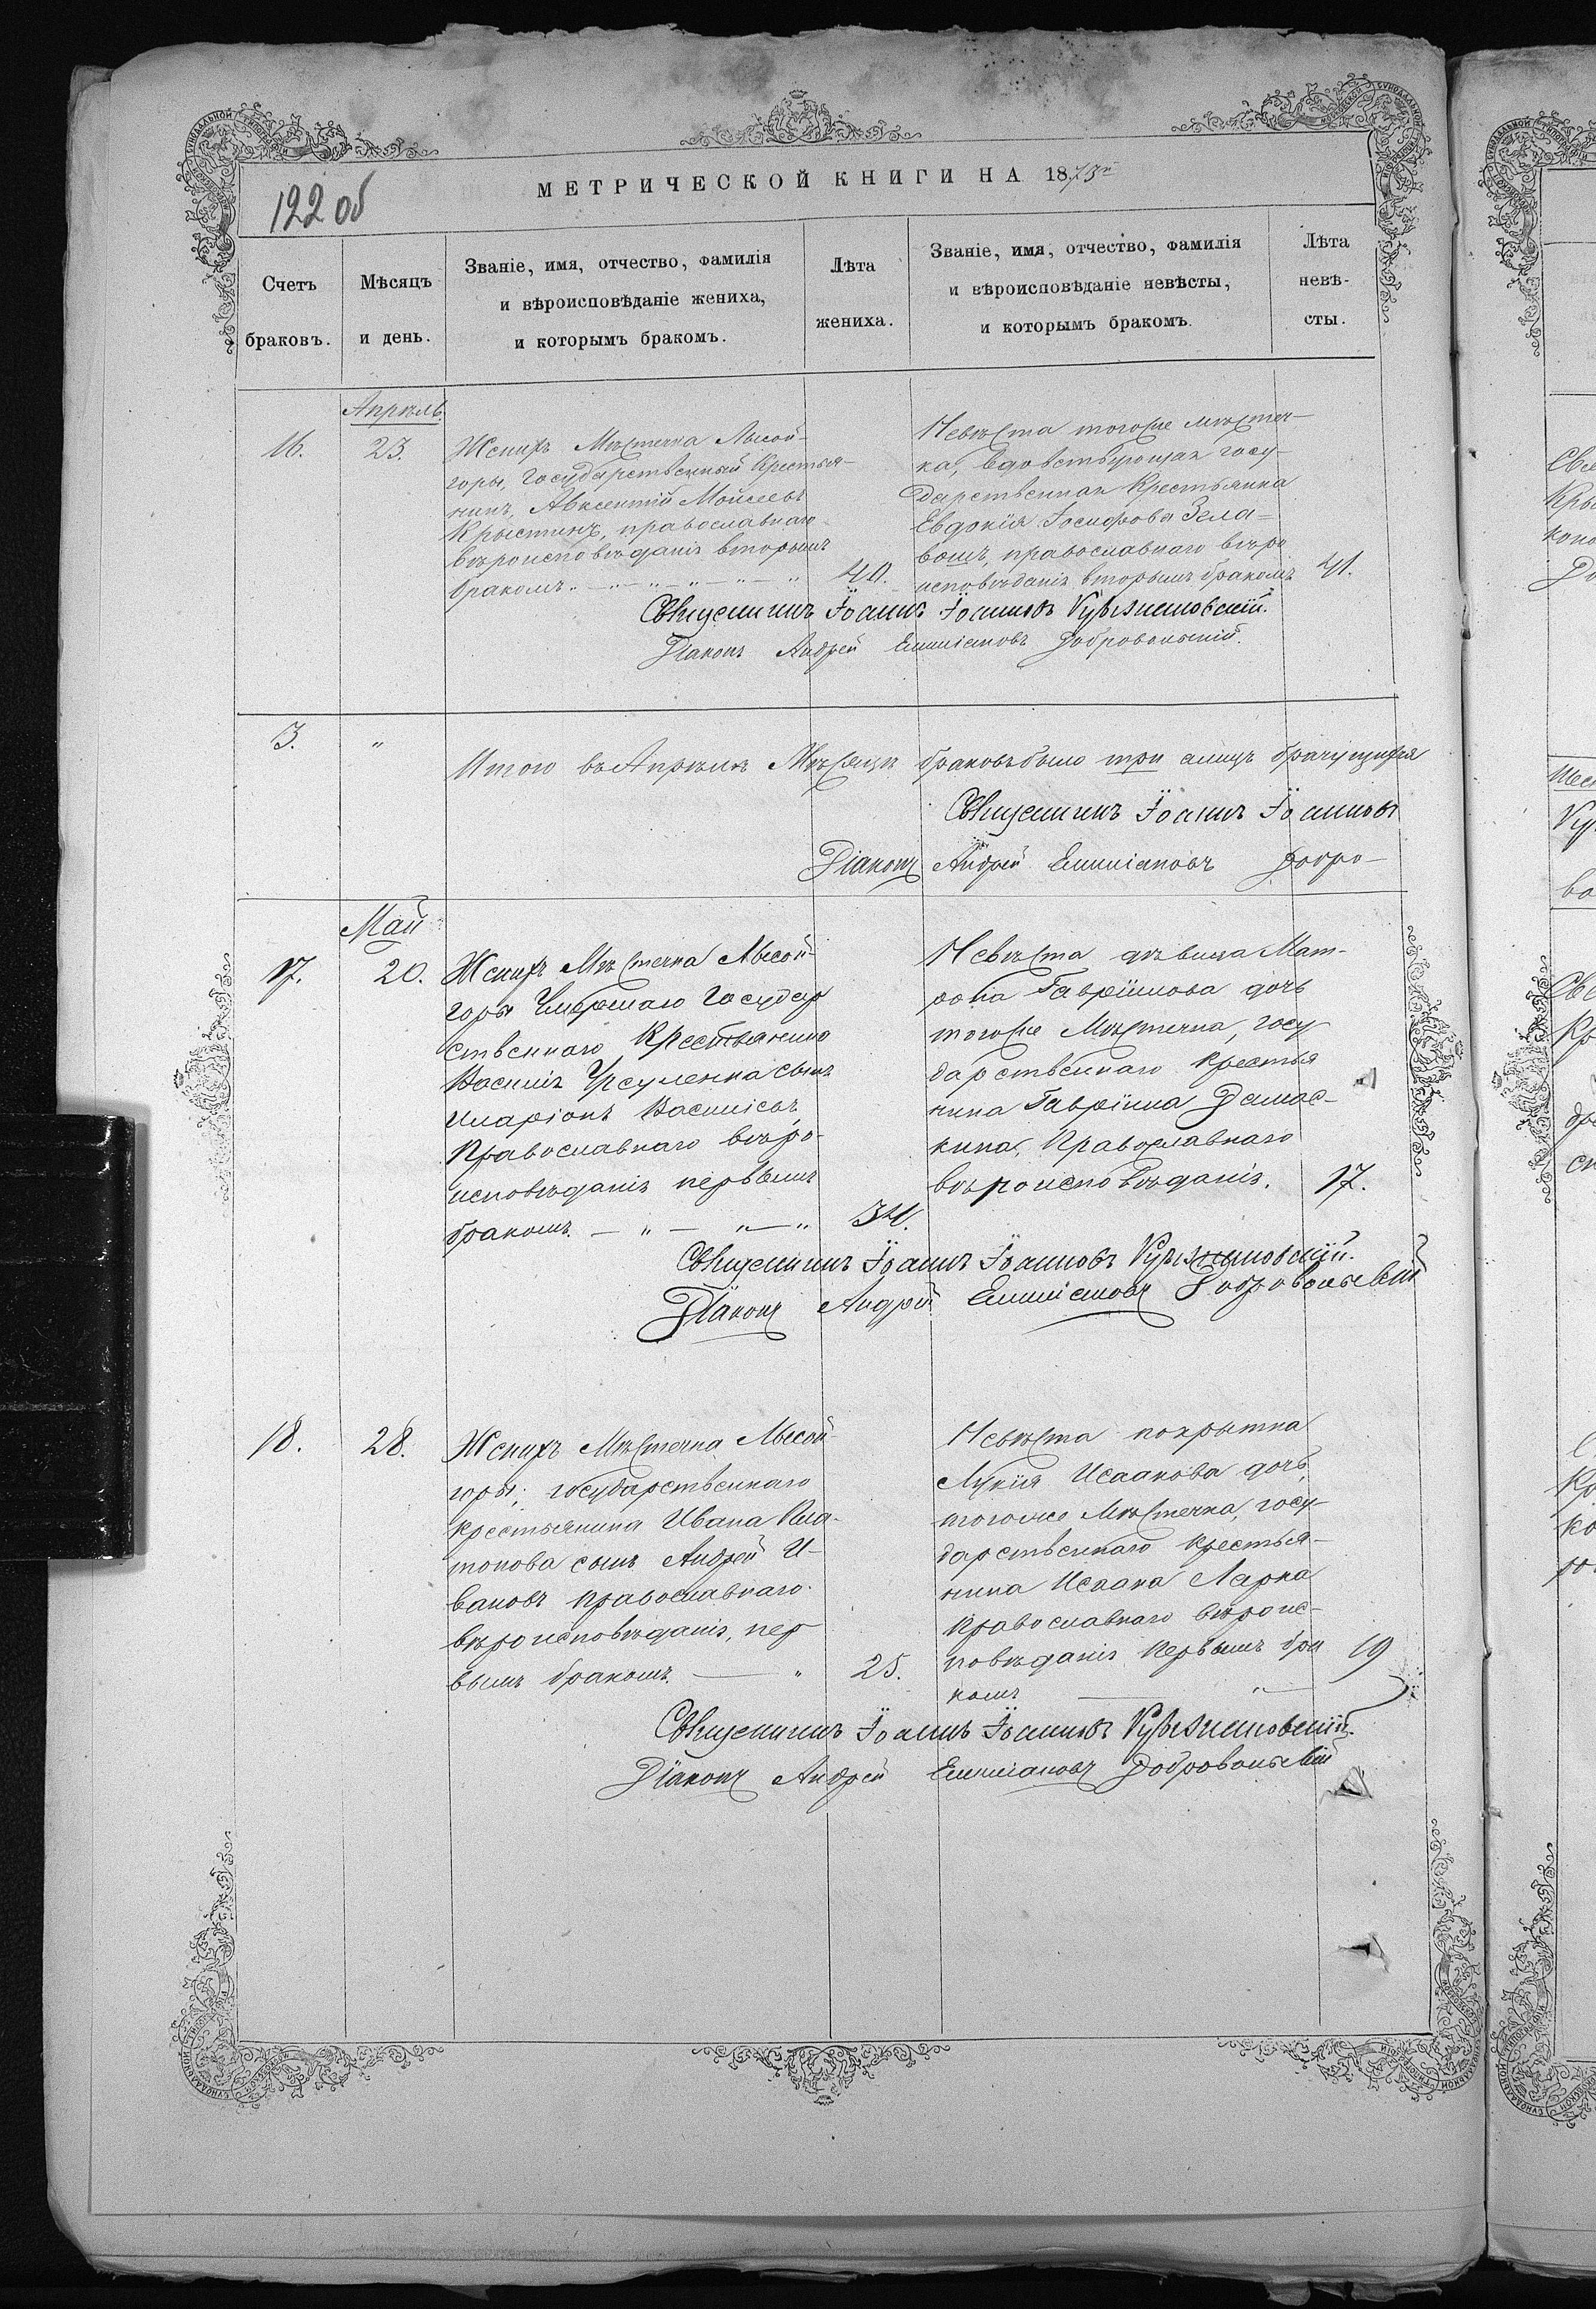 МЕТРИЧЕСКОЙ КНИГИ НА 1873й
122 об
Счетъ браковъ.
Мѣсяцъ и день.
Званіе, имя, отчество, фамилія
и вѣроисповѣданіе жениха,
и которымъ бракомъ.
Лѣта жениха.
Званіе, имя, отчество, фамилія
и вѣроисповѣданіе невѣсты,
и которымъ бракомъ.
Лѣта невѣ-
сты.
Апрѣль
16.
23.
Женихъ Мѣстечка Лысой-
горы, Государственный Крестья-
нинъ, Авксентій Моисеевъ
Крыстинъ, православнаго
вѣроисповѣданія вторымъ
бракомъ. — „ — „ — „ — „
40.
Невѣста тогоже мѣстеч-
ка, вдовствующая госу-
дарственная Крестьянка
Евдокія Іосифова
православнаго вѣро
исповѣданія вторымъ бракомъ
41.
Священникъ Іоаннъ Іоанновъ
Діаконъ Андрей Емиліановъ Добровольскій.
3.
„
Итого въ Апрѣлѣ Мѣсяцѣ браковъ было три а лицъ брачущихся
Священникъ Іоаннъ Іоанновъ
Діаконъ Андрей Емиліановъ Добро-
Май
17.
20.
Женихъ Мѣстечка Лысой-
горы Умершаго Государ
ственнаго Крестьянина
Василія Урсуленка сынъ
Иларіонъ Василіевъ,
Православнаго вѣро-
исповѣданія первымъ
бракомъ. — „ — „ — „
34.
Невѣста дѣвица Мат-
рона Гавріилова дочь
тогоже Мѣстечка, госу-
дарственнаго Крестья
нина Гавріила Дамас-
кина, Православнаго
вѣроисповѣданія.
17.
Священникъ Іоаннъ Іоанновъ
Діаконъ Андрей Емиліановъ Добровольскій
18.
28.
Женихъ Мѣстечка Лысой
горы, государственнаго
крестьянина Ивана Пла-
тонова сынъ Андрей И-
вановъ православнаго
вѣроисповѣданія, пер
вымъ бракомъ. — „
25.
Невѣста покрытка
Лукія Исаакова дочь,
тогоже Мѣстечка, госу-
дарственнаго крестья-
нина Исаака Ларка
православнаго вѣроис-
повѣданія первымъ бра
комъ — „ —
19
Священникъ Іоаннъ Іоанновъ
Діаконъ Андрей Емиліановъ Добровольскій